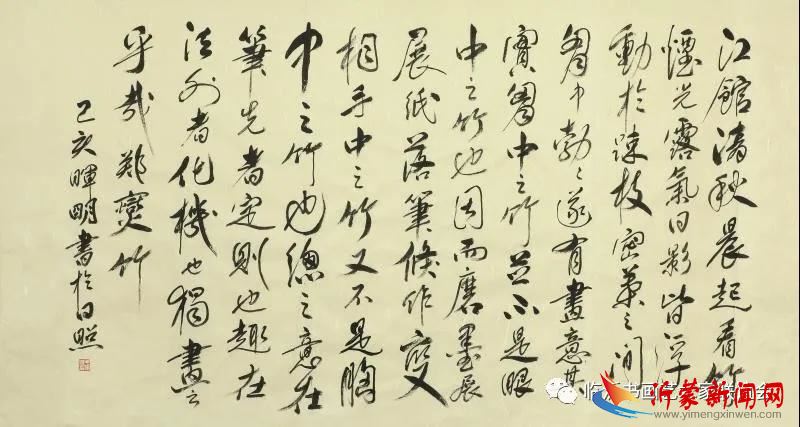 江館清秋晨起看竹
煙光露氣日影皆浮
動於疎枝密葉之間
胷中勃〻遂有畫意其
實胷中之竹並不是眼
中之竹也因而磨墨
展紙落筆倏作變
相手中之竹又不是胸
中之竹也總之意在
筆先者定則也趣在
法外者化機也獨畫云
乎哉 鄭燮竹
己亥暉明書於日照
沂蒙新闻网
www.yimengxinwen.com